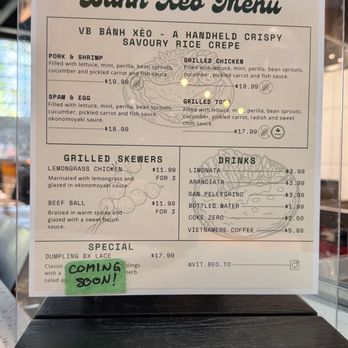 Bánh Xèo Menu
VB BÁNH XÈO - A HANDHELD CRISPY
SAVOURY RICE CREPE
PORK & SHRIMP
Filled with lettuce, mint, perilla, bean sprouts,
cucumber and pickled carrot and fish sauce.
$19.99
GRILLED CHICKEN
Filled with lettuce, mint, perilla, bean sprouts,
cucumber, pickled carrot and fish sauce.
$18.99
SPAM & EGG
Filled with lettuce, mint, perilla, bean sprouts,
cucumber, pickled carrot, fish sauce and
okonomoyaki sauce.
$18.99
GRILLED
Filled with lettuce, mint, perilla, bean sprouts,
cucumber, pickled carrot, radish and sweet
chili sauce.
$17.99
GRILLED SKEWERS
LEMONGRASS CHICKEN $11.99
Marinated with lemongrass and FOR 3
glazed in okonomoyaki sauce.
BEEF BALL $11.99
Braised in warm spices and FOR 3
glazed with a sweet hoisin
sauce.
DRINKS
LIMONATA $3.99
ARANCIATA $3.99
SAN PELLEGRINO $3.99
BOTTLED WATER
COKE ZERO $2.50
VIETNAMESE COFFEE $5.99
SPECIAL
DUMPLING BX LACE $17.99
Classic
with a
salad
COMING
SOON!
@VIT.BEO.TO